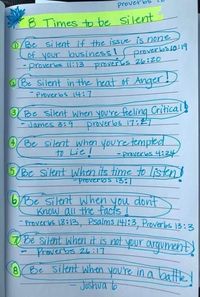 proverbs 18
8 Times to be silent
① Be silent if the issue is none
of your business! proverbs 10:19
- Proverbs 11:13 proverbs 26:20
② Be silent in the heat of Anger!
- Proverbs 14:7
③ Be silent when you're feeling Critical!
- James 3:9 proverbs 17:27
④ Be silent when you're tempted
to Lie! - Proverbs 4:24
⑤ Be Silent when its time to listen!
- Proverbs 13:1
⑥ Be Silent when you dont
know all the facts!
- Proverbs 18:13, Psalms 141:3, Proverbs 13:3
⑦ Be Silent when it is not your argument!
- Proverbs 26:17
⑧ Be Silent when you're in a battle!
- Joshua 6